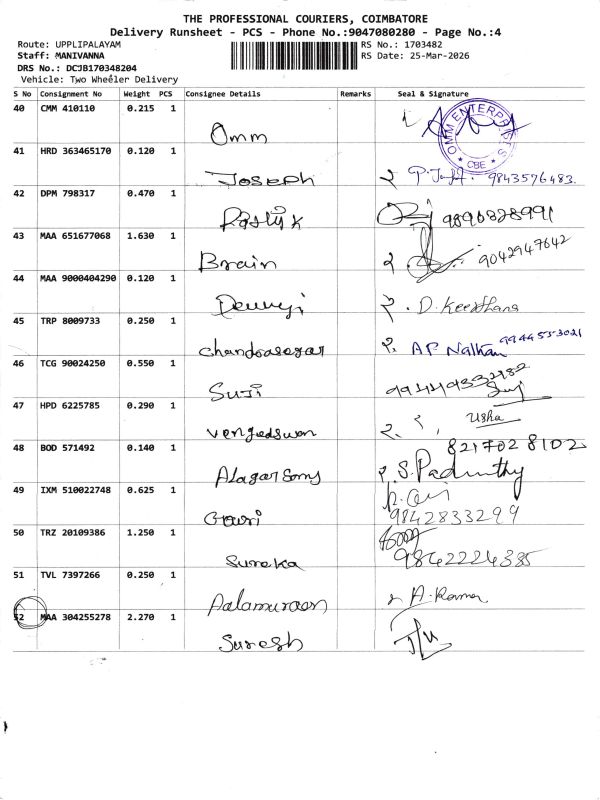 THE PROFESSIONAL COURIERS, COIMBATORE
Delivery Runsheet - PCS - Phone No.:9047080280 - Page No.:4
Route: UPPLIPALAYAM RS No.: 1703482
Staff: MANIVANNA RS Date: 25-Mar-2026
DRS No.: DCJB170348204
Vehicle: Two Wheeler Delivery
S No Consignment No Weight PCS Consignee Details Remarks Seal & Signature
40 CMM 410110 0.215 1
Omm
OMM ENTERPRISES CBE
41 HRD 363465170 0.120 1
Joseph 9843576483
42 DPM 798317 0.470 1
9896828991
43 MAA 651677068 1.630 1
Brain 9042947642
44 MAA 9000404290 0.120 1
D. Keerthana
45 TRP 8009733 0.250 1
Chandrasegar 9944553021
46 TCG 90024250 0.550 1
Suji
47 HPD 6225785 0.290 1
Usha
48 BOD 571492 0.140 1
8217028102
49 IXM 510022748 0.625 1
Gowri 9842833299
50 TRZ 20109386 1.250 1
Sureka 9842224385
51 TVL 7397266 0.250 1
52 MAA 304255278 2.270 1
Suresh